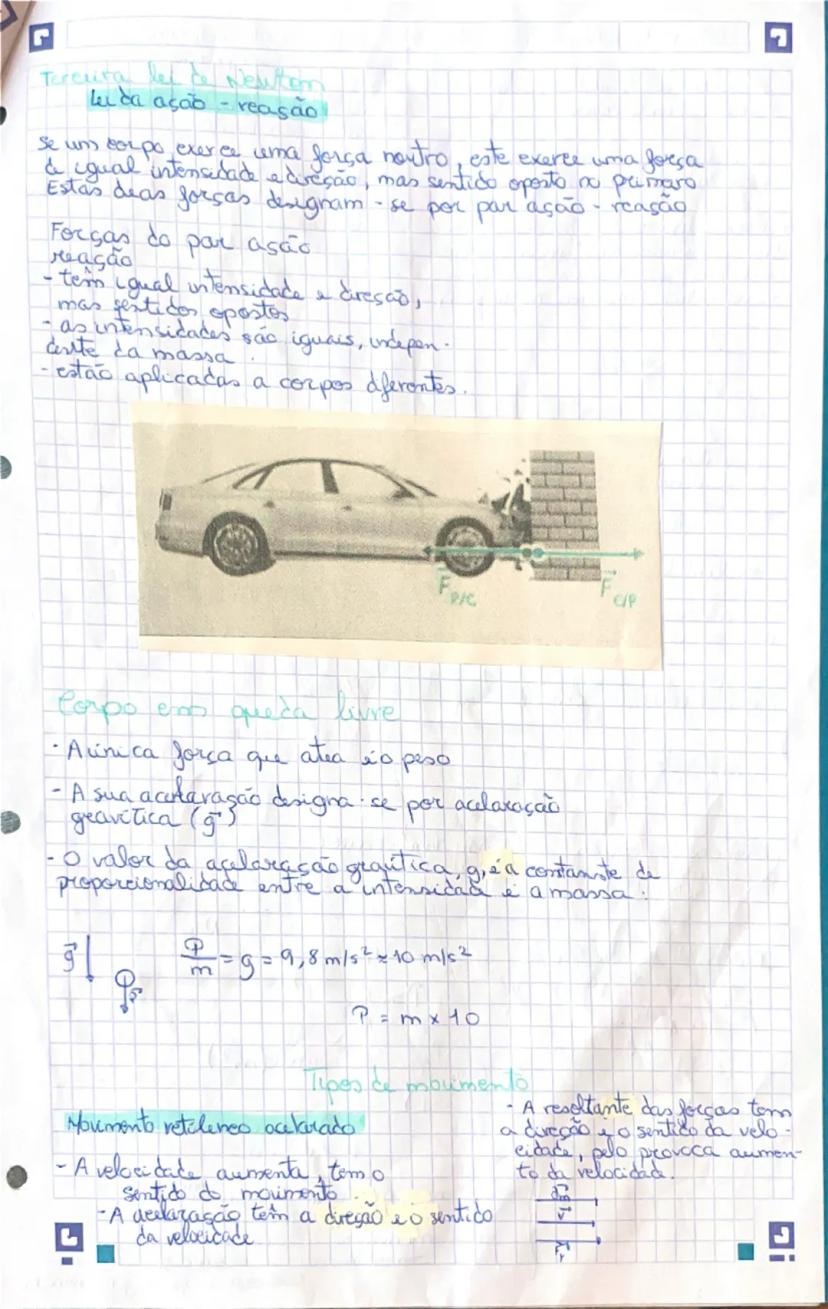 Terceira lei de Newton
Lei da ação - reação
Se um corpo exerce uma força noutro, este exerce uma força
de igual intensidade e direção, mas sentido oposto ao primeiro
Estas duas forças designam-se por par ação - reação
Forças do par ação
reação
- têm igual intensidade e direção,
mas sentidos opostos
- as intensidades são iguais, indepen-
dente da massa.
- estão aplicadas a corpos diferentes.
F P/C
F C/P
Corpo em queda livre
· A única força que atua é o peso
- A sua acelaração designa-se por acelaração
gravítica (g)
- O valor da acelaração gravítica, g, é a constante de
proporcionalidade entre a intensidade e a massa:
g
P/m = g = 9,8 m/s² ≈ 10 m/s²
P = m x 10
Tipos de movimento
Movimento retilíneo acelarado
- A velocidade aumenta, tem o
sentido do movimento.
- A acelaração têm a direção e o sentido
da velocidade
- A resoltante das forças tem
a direção e o sentido da velo-
cidade, pelo provoca aumen-
to da velocidade.
am
v
Fr